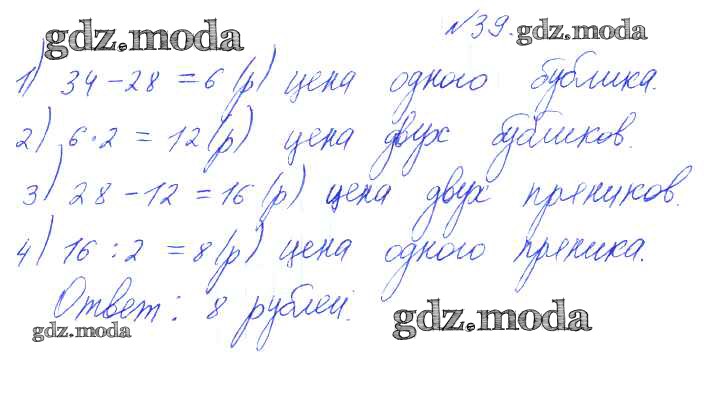 №39.
gdz.moda gdz.moda
1) 34-28=6(р) цена одного бублика.
2) 6·2=12(р) цена двух бубликов.
3) 28-12=16(р) цена двух пряников.
4) 16:2=8(р) цена одного пряника.
Ответ: 8 рублей.
gdz.moda gdz.moda